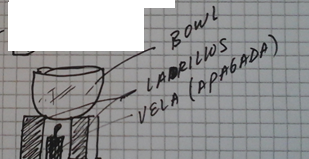 BOWL
LADRILLOS
VELA (APAGADA)